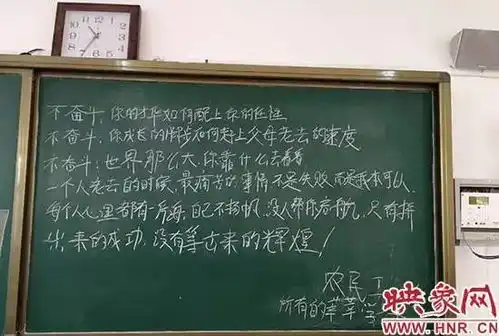 不奋斗，你的才华如何配上你的任性
不奋斗，你成长的脚步如何赶上父母老去的速度
不奋斗：世界那么大，你靠什么去看看
一个人老去的时候，最痛苦的事情不是失败而是我本可以
每个人心里都有一片海，自己不扬帆，没人帮你启航，只有拼
出来的成功，没有等出来的辉煌！
农民工
所有的莘莘学
映象网
WWW.HNR.CN